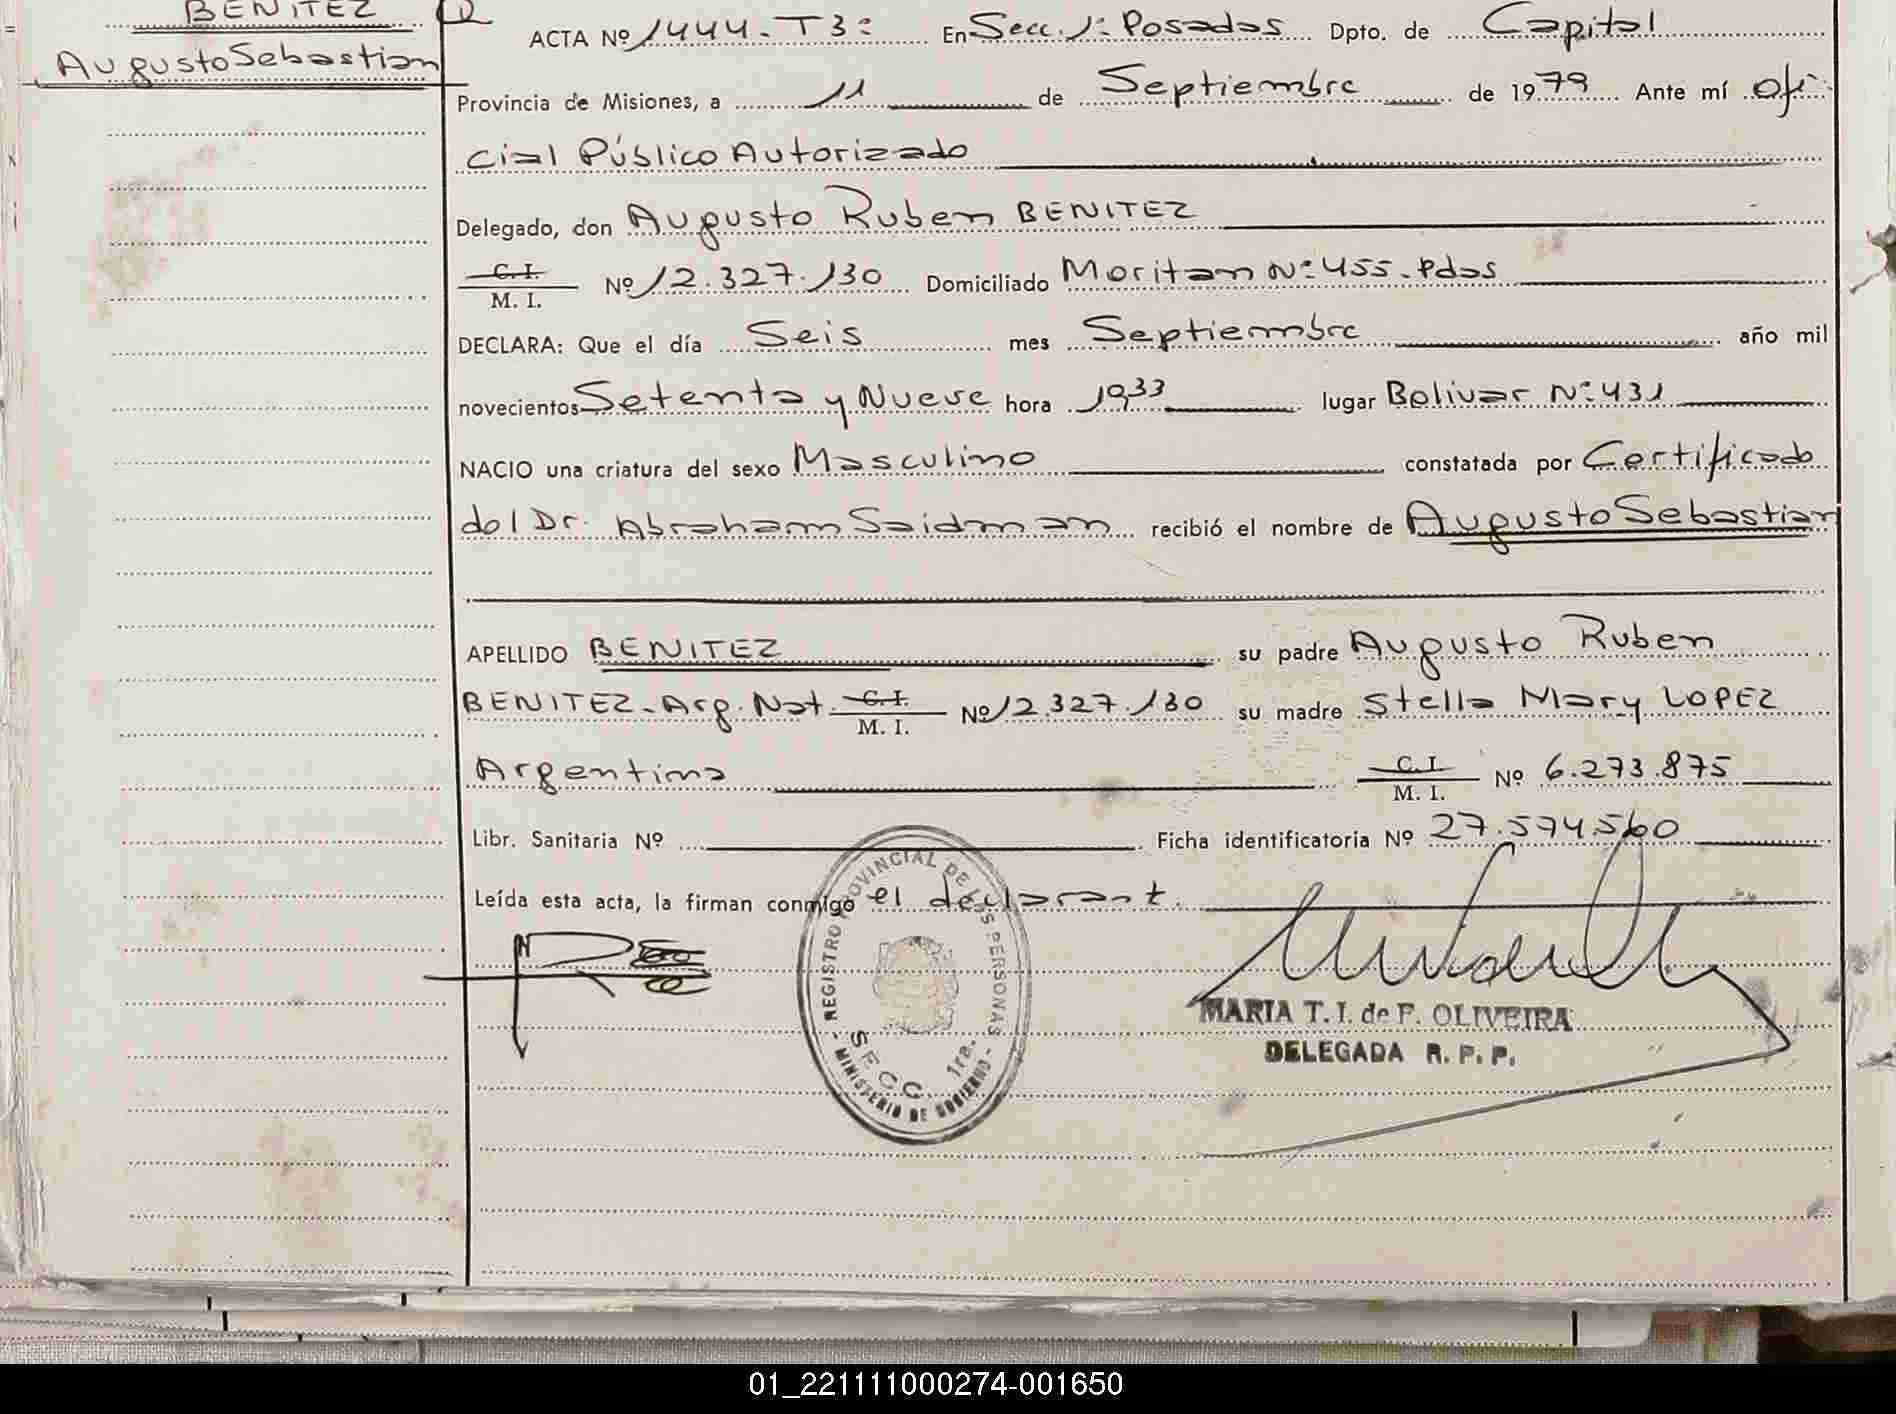 BENITEZ
Augusto Sebastian
ACTA Nº 1444. T3: En Secc. 1: Posadas Dpto. de Capital
Provincia de Misiones, a 11 de Septiembre de 1979 Ante mí ofi
cial Público Autorizado
Delegado, don Augusto Ruben BENITEZ
C. I.
M. I. Nº 12.327.130 Domiciliado Moritan Nº 455. Pdas
DECLARA: Que el día Seis mes Septiembre año mil
novecientos Setenta y Nueve hora 19,33 lugar Bolivar Nº 431
NACIO una criatura del sexo Masculino constatada por Certificado
del Dr. Abraham Saidman recibió el nombre de Augusto Sebastian
APELLIDO BENITEZ su padre Augusto Ruben
BENITEZ - Arg. Nat. C. I. M. I. Nº 12.327.130 su madre Stella Mary LOPEZ
Argentina C. I. M. I. Nº 6.273.875
Libr. Sanitaria Nº Ficha identificatoria Nº 27.574.560
Leída esta acta, la firman conmigo el declarant.
REGISTRO PROVINCIAL DE LAS PERSONAS
SECC. 1ra.
- MINISTERIO DE GOBIERNO -
MARIA T. I. de F. OLIVEIRA
DELEGADA R. P. P.
01_221111000274-001650